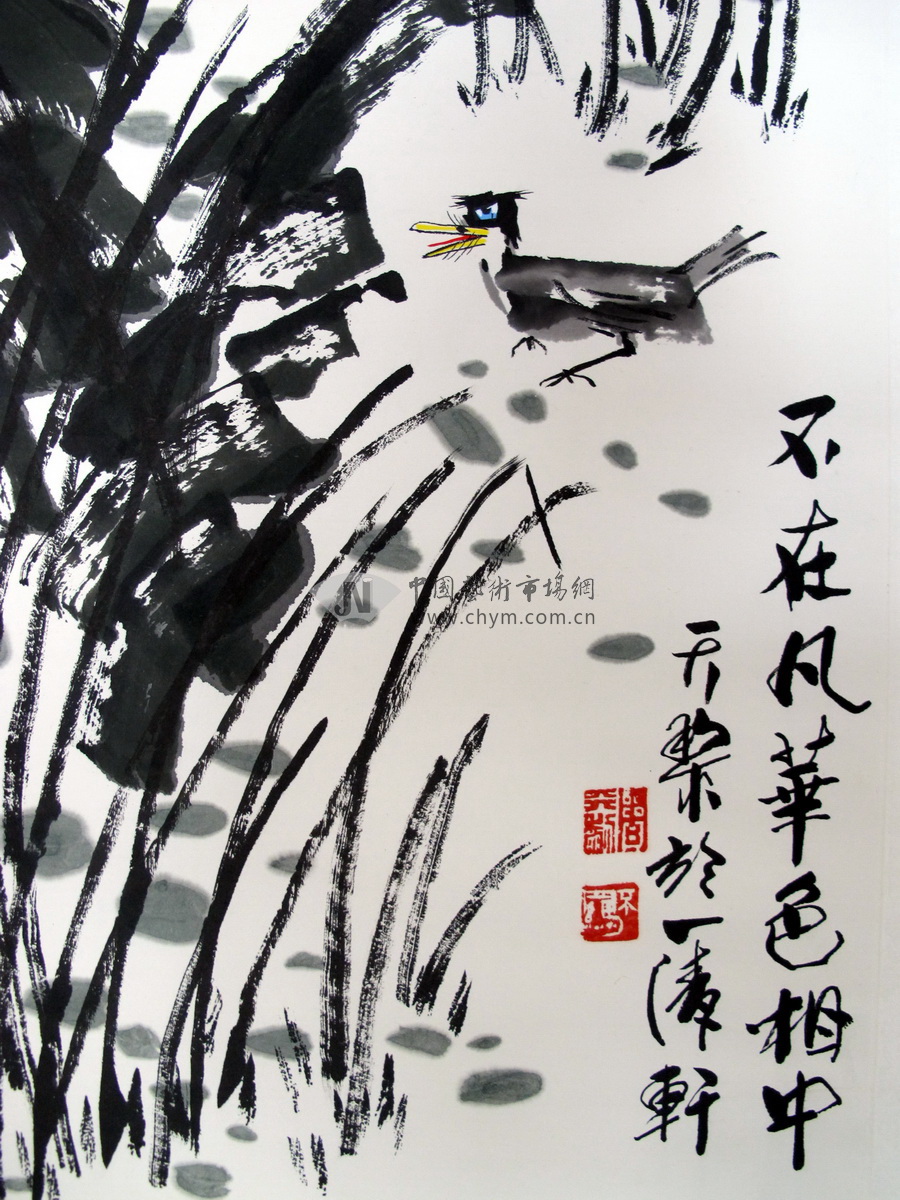 不在凡華色相中
天黎於一清軒
中國藝術市場網
www.chym.com.cn